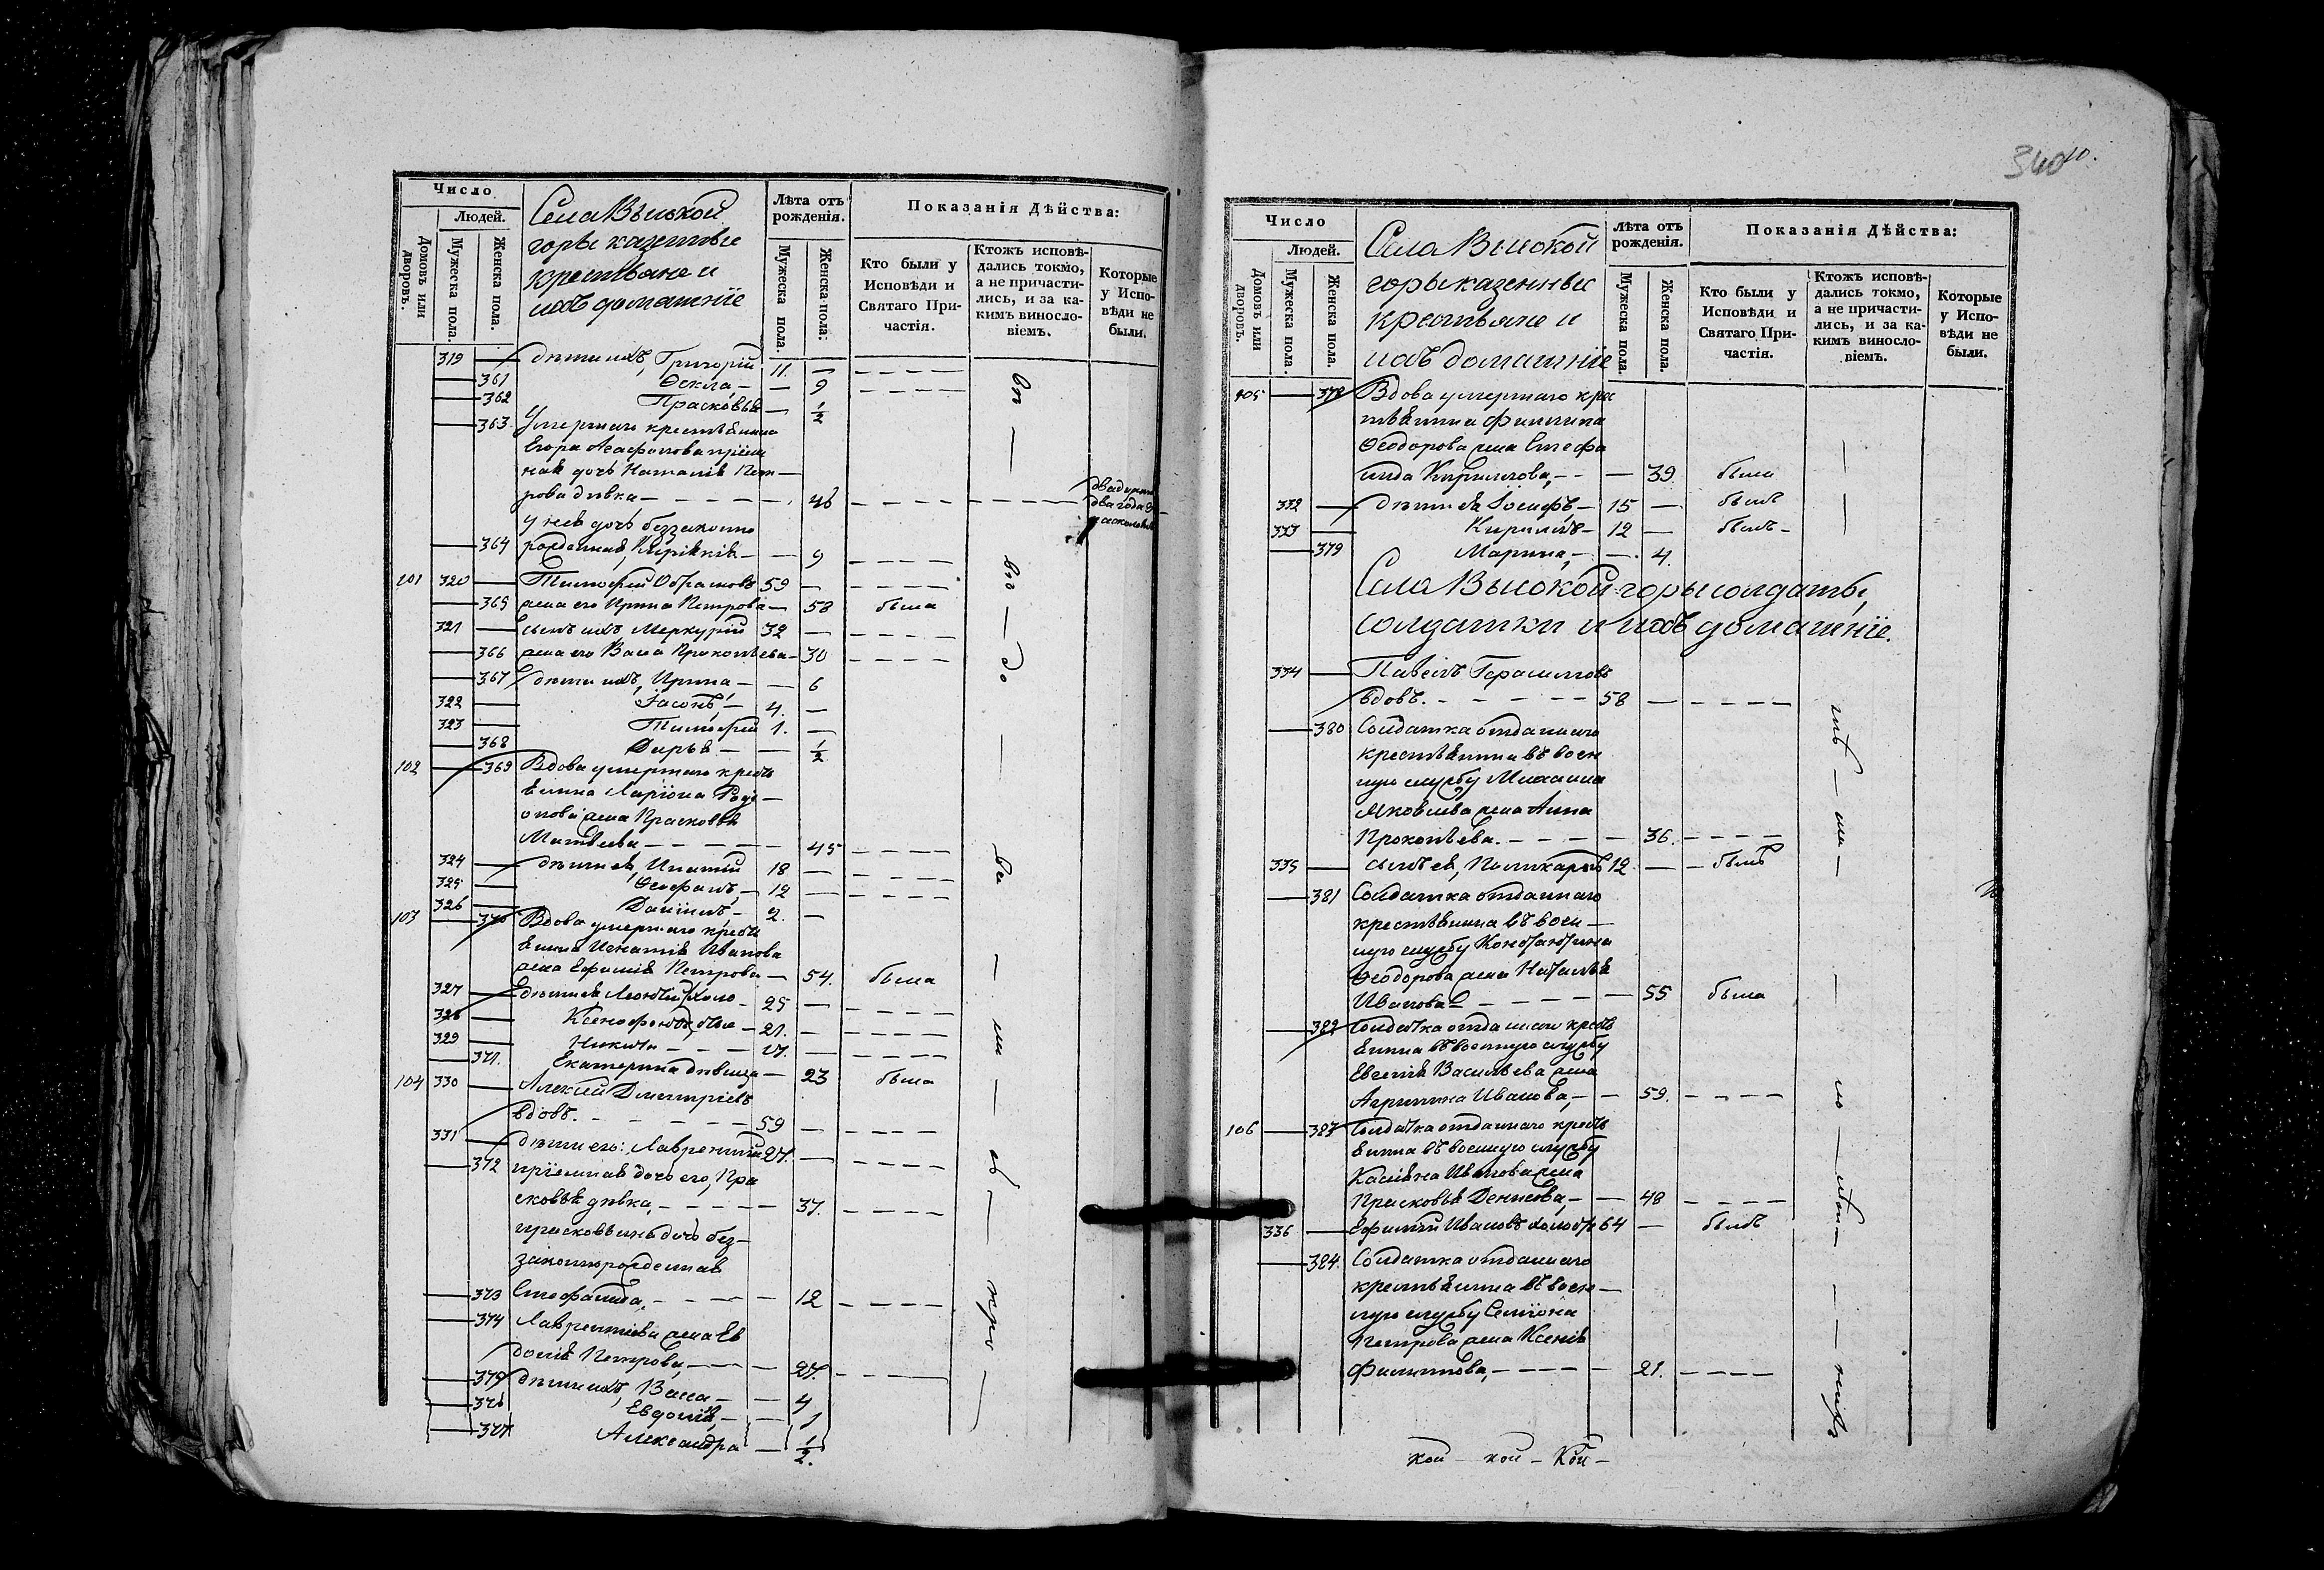 Число
Людей.
Домовъ или дворовъ.
Мужеска пола.
Женска пола.
Села Высокой
горы казенные
крестьяне и
ихъ домашніе
Лѣта отъ рожденія.
Мужеска пола.
Женска пола.
Показанія Дѣйства:
Кто были у Исповѣди и Святаго Причастія.
Ктожъ исповѣдались токмо, а не причастились, и за какимъ винословіемъ.
Которые у Исповѣди не были.
319 — дѣти ихъ, Григорій 11. —
— 361 Ѳекла — — 9
— 362 Прасковья — ½
— 363. Умершаго крестьянина
Егора Агафонова пріем
ная дочь Наталія Пет—
рова дѣвка — 46
двадцать
два года въ
расколѣ
у нея дочь беззаконно
— 364 рожденная, Киріакія — — 9
101 320 — Тимофей Абрамовъ 59 —
— 365 жена его Ирина Петрова — 58 была
321 — сынъ ихъ Меркурій 32 —
— 366 жена его Васса Прокопьева — 30
— 367 дѣти ихъ, Ирина — — 6
322 — Іасонъ, — 4. —
323 — Тимофей 1. —
— 368 Дарья — — ½
102 — 369 Вдова умершаго кресть
янина Ларіона Роді—
онова жена Прасковья
Матвѣева — 45
324 — дѣти ея, Игнатій 18 —
325 — Ѳеофанъ, — 12 —
326 — Даніилъ, — 2. —
103 — 370 Вдова умершаго кресть
янина Игнатія Иванова
жена Ефимія Петрова — 54. была
327 — дѣти ея Леонтій холо — 25 —
328 — Ксенофонтъ, — 21. —
329 — Никита — 17. —
— 371. Екатерина дѣвица — 23 была
104 330 — Алексій Димитріевъ
вдовъ. — 59 —
331 — дѣти его: Лаврентій 27. —
— 372 пріемная дочь его, Пра
сковья дѣвка, — 37.
Прасковьина дочь без—
законнорожденная
— 373 Стефанида, — 12
— 374 Лаврентіева жена Ев
докія Петрова, — 27.
— 375 дѣти ихъ, Васса — — 4
— 376 Евдокія, — — 1
— 377 Александра — ½.
340
Число
Людей.
Домовъ или дворовъ.
Мужеска пола.
Женска пола.
Села Высокой
горы казенные
крестьяне и
ихъ домашніе
Лѣта отъ рожденія.
Мужеска пола.
Женска пола.
Показанія Дѣйства:
Кто были у Исповѣди и Святаго Причастія.
Ктожъ исповѣдались токмо, а не причастились, и за какимъ винословіемъ.
Которые у Исповѣди не были.
105 — 378 Вдова умершаго крес
тьянина Филиппа
Ѳеодорова жена Стефа
нида Кириллова, — — 39. была
332 — дѣти ея Іосифъ, — 15 — былъ
333 — Кириллъ — 12 — былъ —
— 379 Марина, — — 4.
Села Высокой горы солдаты,
солдатки и ихъ домашніе.
334 — Павелъ Герасимовъ
вдовъ. — 58 —
— 380 Солдатка отданнаго
крестьянина въ воен
ную службу Михаила
Яковлева жена Анна
Прокопьева. — 36.
335 — сынъ ея, Поликарпъ 12. — былъ
— 381 Солдатка отданнаго
крестьянина въ воен—
ную службу Константина
Ѳеодорова жена Наталья
Иванова — 55 была
— 382 Солдатка отданнаго кресть
янина въ военную службу
Евсевія Васильева жена
Агрипина Иванова, — — 59.
106 — 383 Солдатка отданнаго кресть
янина въ военную службу
Касіяна Иванова жена
Прасковья Денисова, — — 48
336 — Ефимій Ивановъ холостъ 64 — былъ
— 384. Солдатка отданнаго
крестьянина въ воен—
ную службу Симіона
Петрова жена Ксенія
Филиппова, — 21.
кой — кой — Кой —